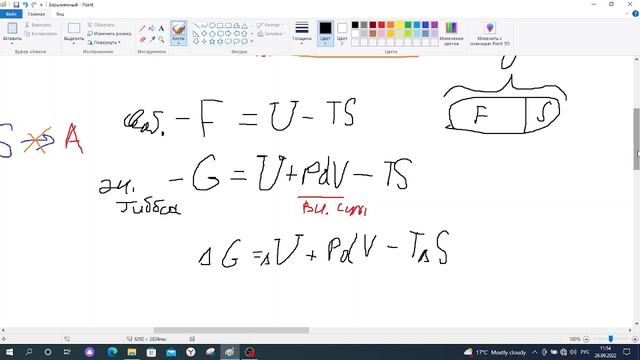 Безымянный - Paint
Файл Главная Вид
Вставить Вырезать Копировать Буфер обмена
Выделить Обрезать Изменить размер Повернуть Изображение
Инструменты
Кисти
Контур Заливка Фигуры
Толщина Цвет 1 Цвет 2
Цвета
Изменение цветов
Изменить с помощью Paint 3D
U
своб. - F = U - TS
F S
S A
эн. Гиббса - G = U + PdV - TS
вн. силы
Δ G = ΔU + PdV - TΔS
6292 × 2824пкс
100%
17°C Mostly cloudy
РУС
11:54
26.09.2022